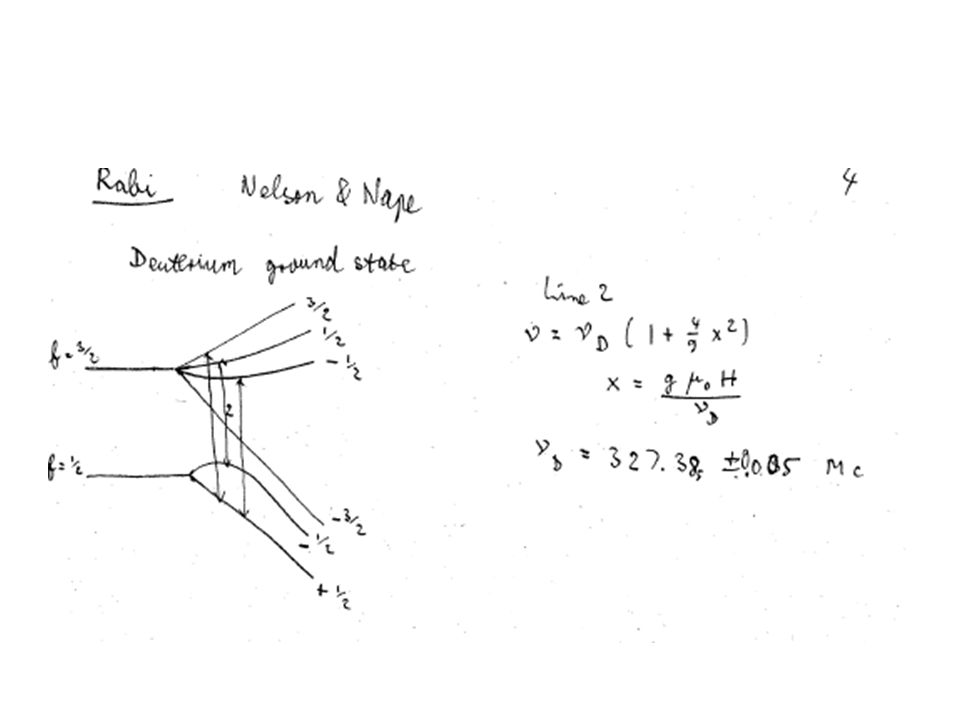 Rabi Nelson & Nafe 4
Deuterium ground state
3/2
1/2
- 1/2
f = 3/2
2
f = 1/2
- 3/2
- 1/2
+ 1/2
Line 2
ν = ν_D ( 1 + 4/9 x² )
x = g μ₀ H / ν_D
ν_D = 327.38 ± 0.05 Mc